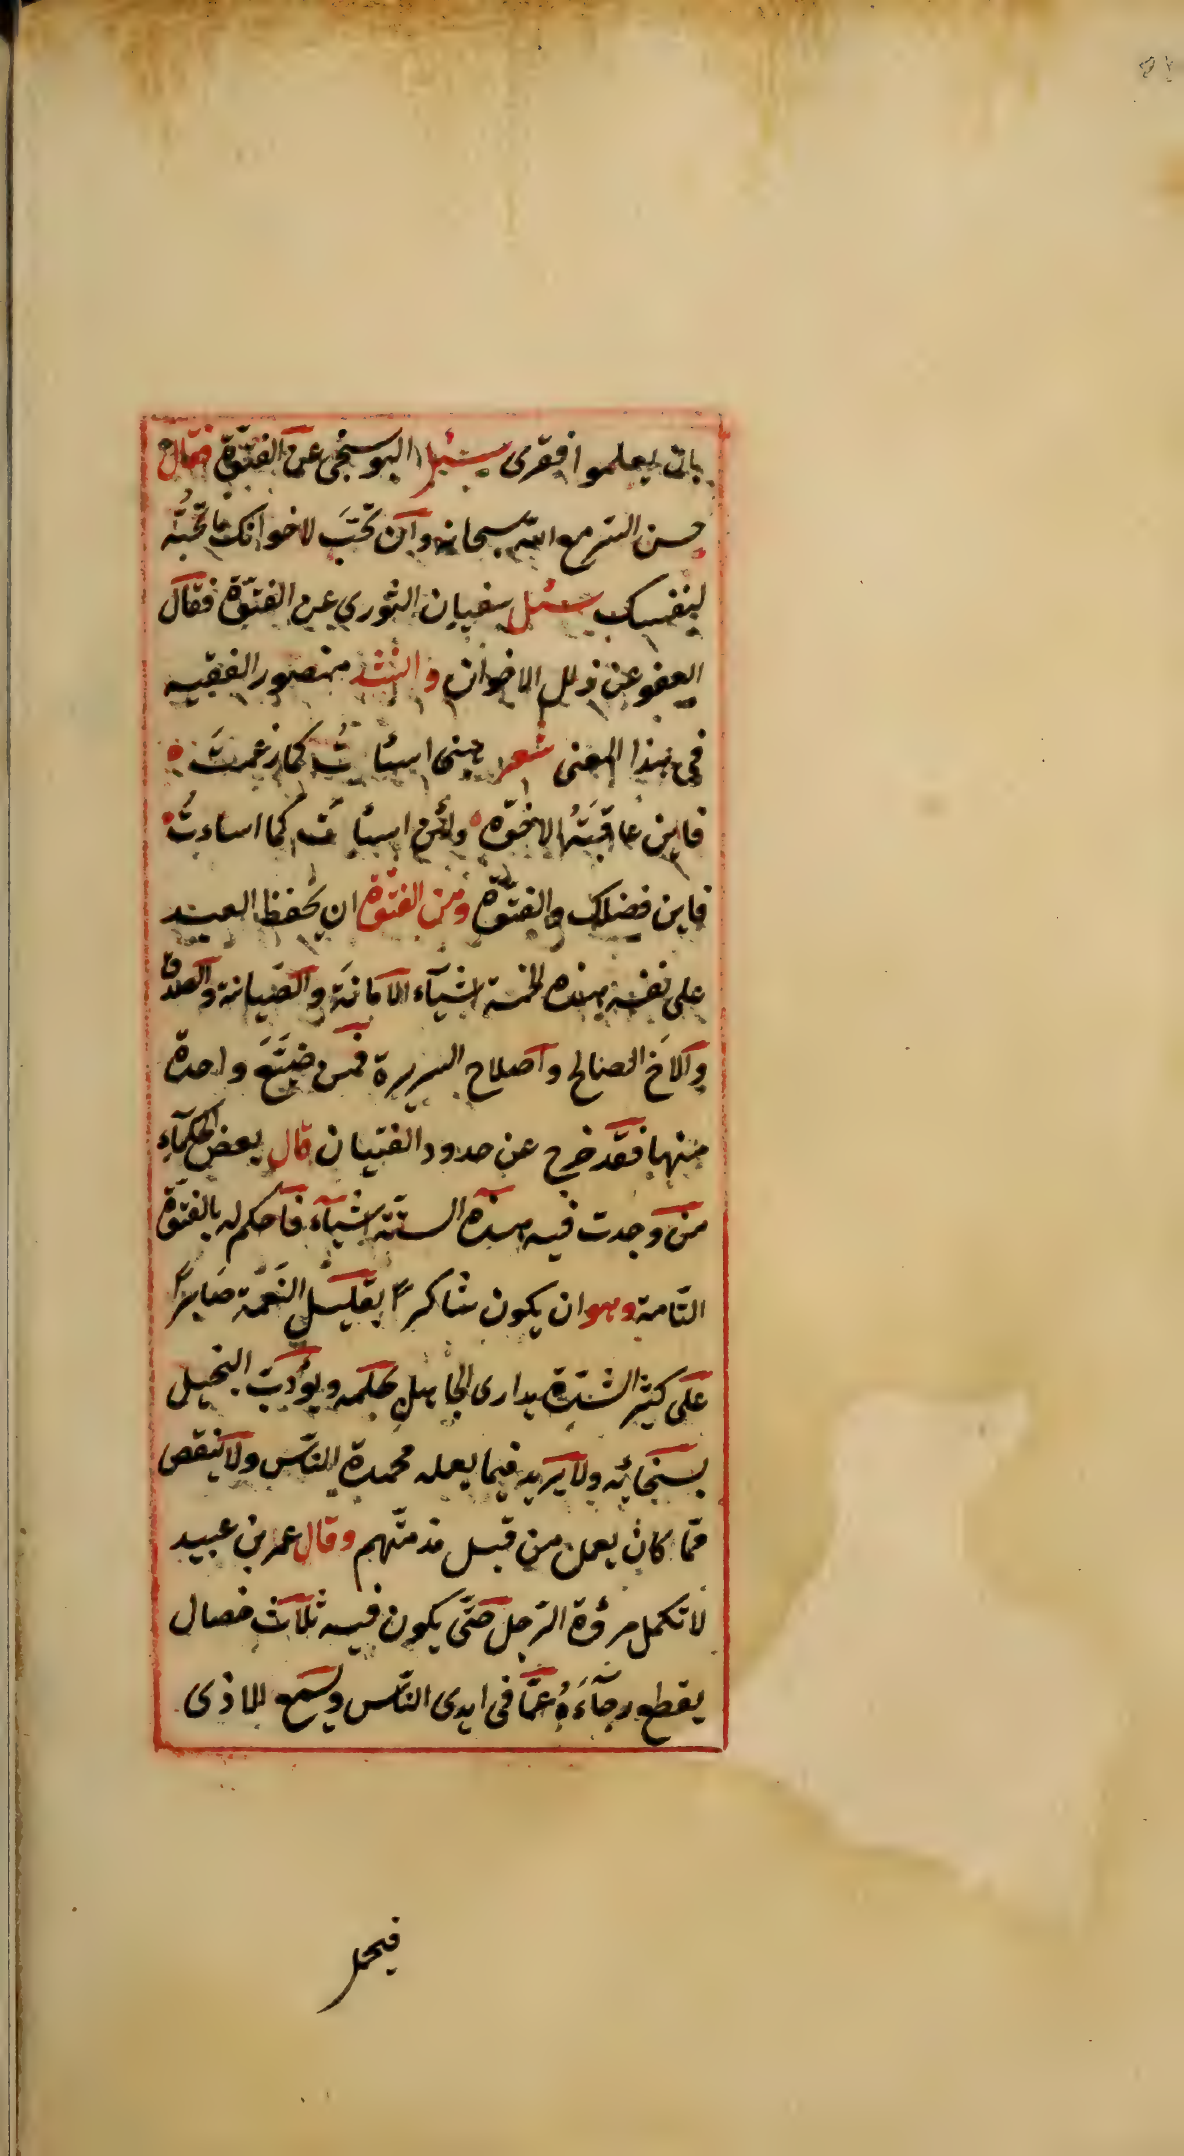 بان يعلموا فقرى سئل البوسنجى عن الفتوّة فقال
حسن السّر مع الله سبحانه وان تحّب لاخوانك ما تحُبّه
لنفسك سئل سفيان الثوري عن الفتوّة فقال
العفو عن زلل الاخوان وانشد منصور الفقيه
فى هذا المعنى شعر هبنى اسئاتُ كما زعمتَ
فاين عاقبَتُه الاخوّه ولئن اسئاتَ كما اساءتُ
فاين فضلك والفتوّة ومن الفتوّة ان يحفظ العبد
على نفسه هذه الخمسة اشيآء الامانَة والصَيانة والصدق
والاَخ الصالح واصلاح السريرة فمن ضيّعَ واحدة
منها فقد خرج عن حدود الفتيان قال بعض الحكمآء
من وجدت فيه هذه الستّة اشيآء فاحكم له بالفتوّة
التّامة وهو ان يكون شاكراً بقليل النَعمة صَابراً
على كثير الشدّة يدارى الجاهل بحلمه ويؤدّب البخيل
بسخائه ولا يريد فيما يعمله محمدة النّاس ولا ينقص
ممّا كان يعمل من قبل مذمّتهم وقال عمر بن عبيد
لا تكمل مرؤة الرّجل حتّى يكون فيه ثلاث خصال
يقطع رجآءَهُ عمّا فى ايدى النّاس ويسمع الاذى
فيحمل